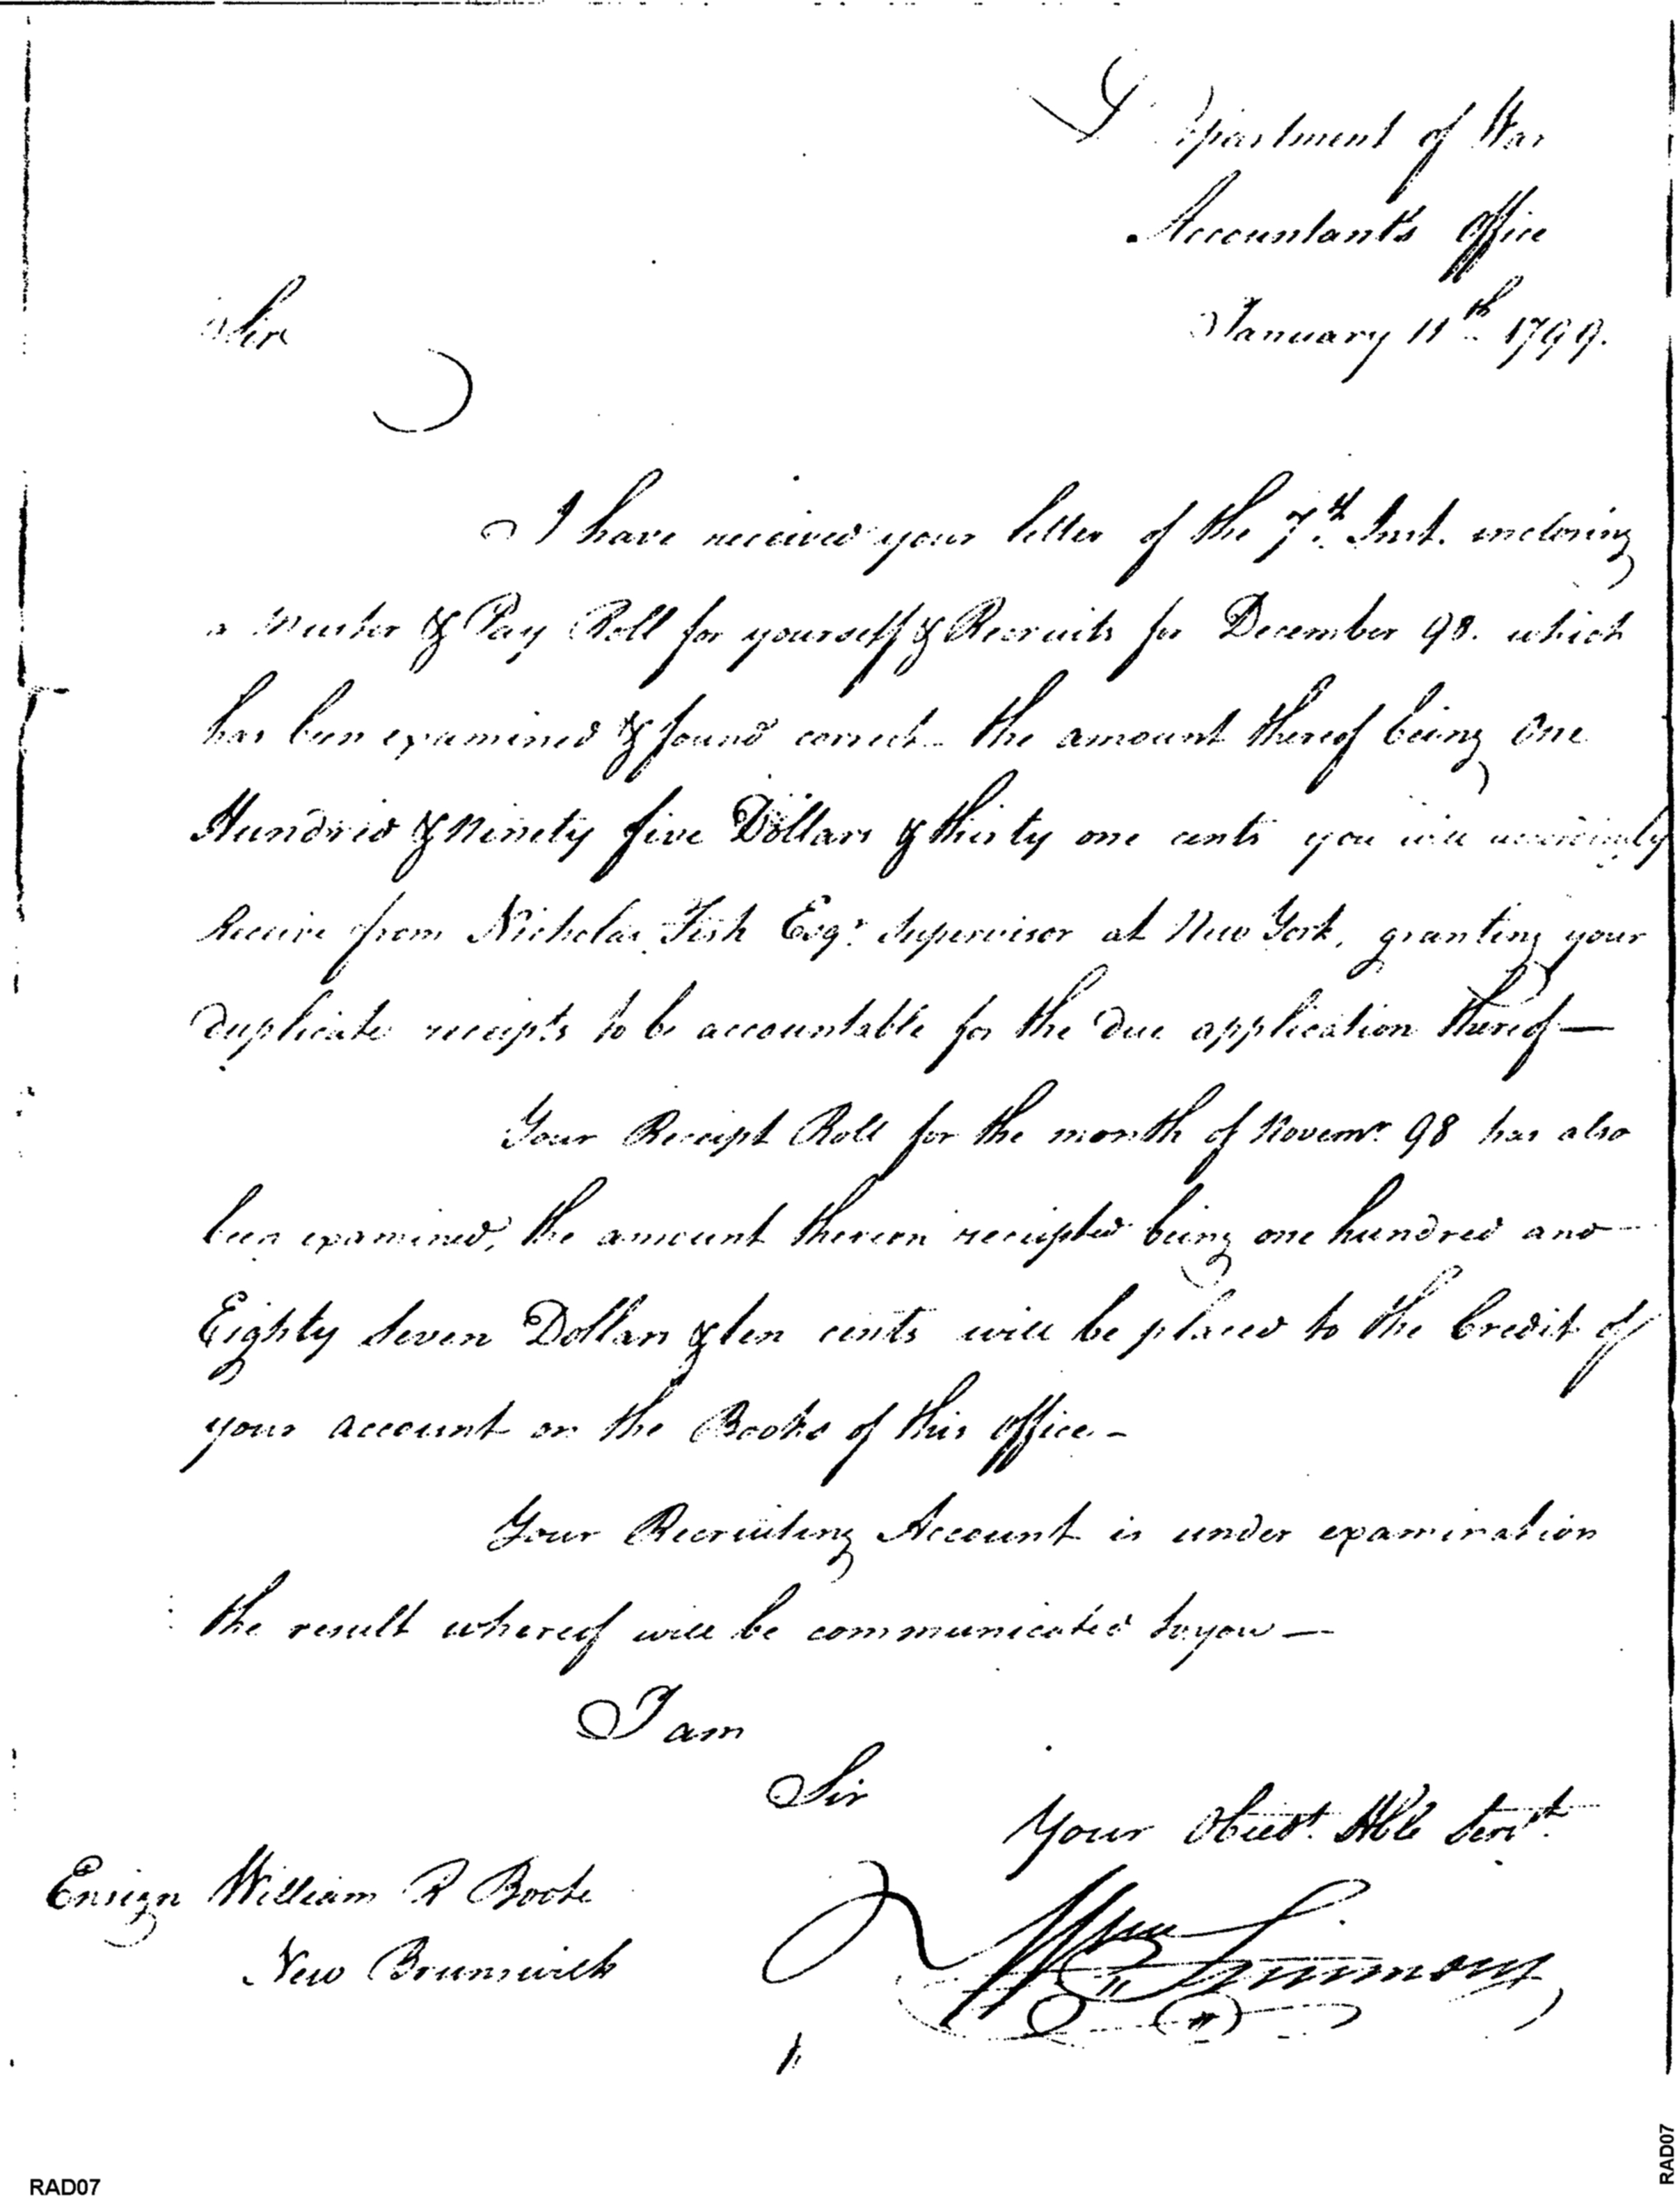 Department of War
Accountant's Office
January 11th 1799.
Sir
I have received your letter of the 7th Inst. enclosing
a Muster & Pay Roll for yourself & Recruits for December 98. which
has been examined & found correct - the amount thereof being One
Hundred & Ninety five Dollars & thirty one cents you will accordingly
Receive from Nicholas Fish Esqr. Supervisor at New York, granting your
duplicate receipts to be accountable for the due application thereof —
Your Receipt Roll for the month of Novemr. 98 has also
been examined, the amount thereon receipted being one hundred and
Eighty Seven Dollars & ten cents will be placed to the Credit of
your account on the Books of this office -
Your Recruiting Account is under examination
the result whereof will be communicated to you —
I am
Sir
Your Obedt. Hble Servt.
Ensign William R Boote
Wm Simmons
New Brunswick
RAD07
RAD07